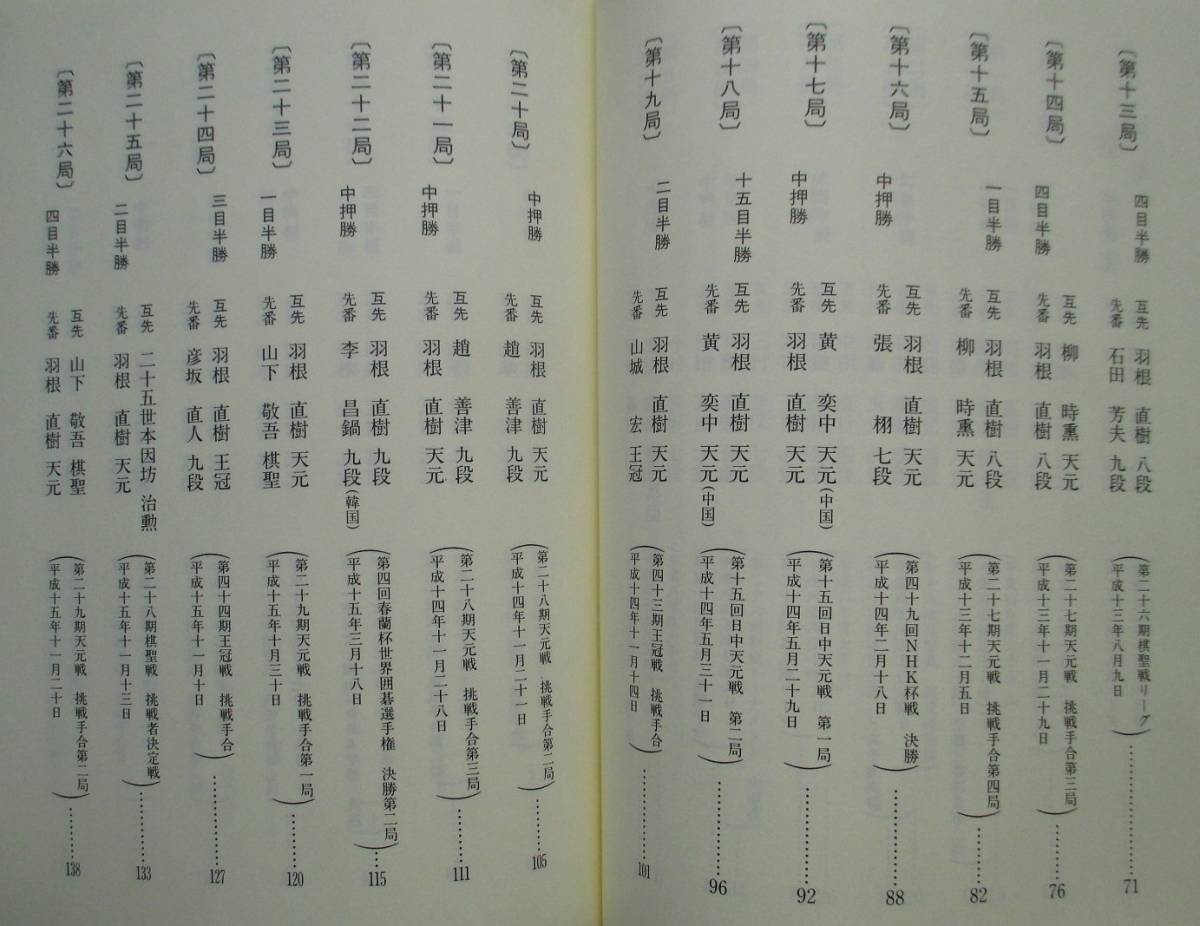 〔第十三局〕
四目半勝
互先 羽根 直樹 八段
先番 石田 芳夫 九段
(第二十六期棋聖戦リーグ
平成十三年八月九日)
71
〔第十四局〕
四目半勝
互先 柳 時熏 天元
先番 羽根 直樹 八段
(第二十七期天元戦 挑戦手合第三局
平成十三年十一月二十九日)
76
〔第十五局〕
一目半勝
互先 羽根 直樹 八段
先番 柳 時熏 天元
(第二十七期天元戦 挑戦手合第四局
平成十三年十二月五日)
82
〔第十六局〕
中押勝
互先 羽根 直樹 天元
先番 張 栩 七段
(第四十九回NHK杯戦 決勝
平成十四年二月十八日)
88
〔第十七局〕
中押勝
互先 黄 奕中 天元(中国)
先番 羽根 直樹 天元
(第十五回日中天元戦 第一局
平成十四年五月二十九日)
92
〔第十八局〕
十五目半勝
互先 羽根 直樹 天元
先番 黄 奕中 天元(中国)
(第十五回日中天元戦 第二局
平成十四年五月三十一日)
96
〔第十九局〕
二目半勝
互先 羽根 直樹 天元
先番 山城 宏 王冠
(第四十三期王冠戦 挑戦手合
平成十四年十一月十四日)
101
〔第二十局〕
中押勝
互先 羽根 直樹 天元
先番 趙 善津 九段
(第二十八期天元戦 挑戦手合第二局
平成十四年十一月二十一日)
105
〔第二十一局〕
中押勝
互先 趙 善津 九段
先番 羽根 直樹 天元
(第二十八期天元戦 挑戦手合第三局
平成十四年十一月二十八日)
111
〔第二十二局〕
中押勝
互先 羽根 直樹 九段
先番 李 昌鍋 九段(韓国)
(第四回春蘭杯世界囲碁選手権 決勝第二局
平成十五年三月十八日)
115
〔第二十三局〕
一目半勝
互先 羽根 直樹 天元
先番 山下 敬吾 棋聖
(第二十九期天元戦 挑戦手合第一局
平成十五年十月三十日)
120
〔第二十四局〕
三目半勝
互先 羽根 直樹 王冠
先番 彦坂 直人 九段
(第四十四期王冠戦 挑戦手合
平成十五年十一月十日)
127
〔第二十五局〕
二目半勝
互先 二十五世本因坊 治勲
先番 羽根 直樹 天元
(第二十八期棋聖戦 挑戦者決定戦
平成十五年十一月十三日)
133
〔第二十六局〕
四目半勝
互先 山下 敬吾 棋聖
先番 羽根 直樹 天元
(第二十九期天元戦 挑戦手合第二局
平成十五年十一月二十日)
138